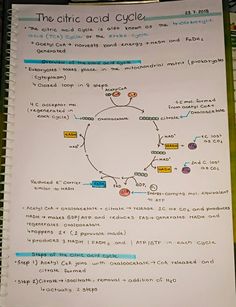 The citric acid cycle
23.7.2018
• The citric acid cycle is also known as the tricarboxylic
acid (TCA) cycle or the krebs cycle
↳ Acetyl CoA → harvests bond energy → NADH and FADH2
generated
Overview of the citric acid cycle
• Eukaryotes: takes place in the mitochondrial matrix (prokaryotes
cytoplasm)
↳ Closed loop in 8 steps
Acetyl CoA
CoA
4 C acceptor mol
(regenerated in
each cycle)
6 C mol formed
from acetyl CoA
oxaloacetate
citrate
NADH
NAD+
NAD+
NADH
1st C. lost
as CO2
NAD+
NADH
2nd C. lost
as CO2
FADH2
FAD
Reduced e- carrier
similar to NADH
Energy-carrying mol. equivalent
to ATP
• Acetyl CoA + oxaloacetate → citrate → release 2C as CO2 and produces
NADH → makes GTP/ATP and reduces FAD → generates NADH and
regenerates oxaloacetate
↳ happens 2x (2 pyruvate made)
↳ produces 3 NADH, 1 FADH2 and 1 ATP/GTP in each cycle
Steps of the citric acid cycle
• Step 1) Acetyl CoA joins with oxaloacetate → CoA released and
citrate formed
• Step 2) Citrate → isocitrate, removal + addition of H2O
↳ actually 2 steps